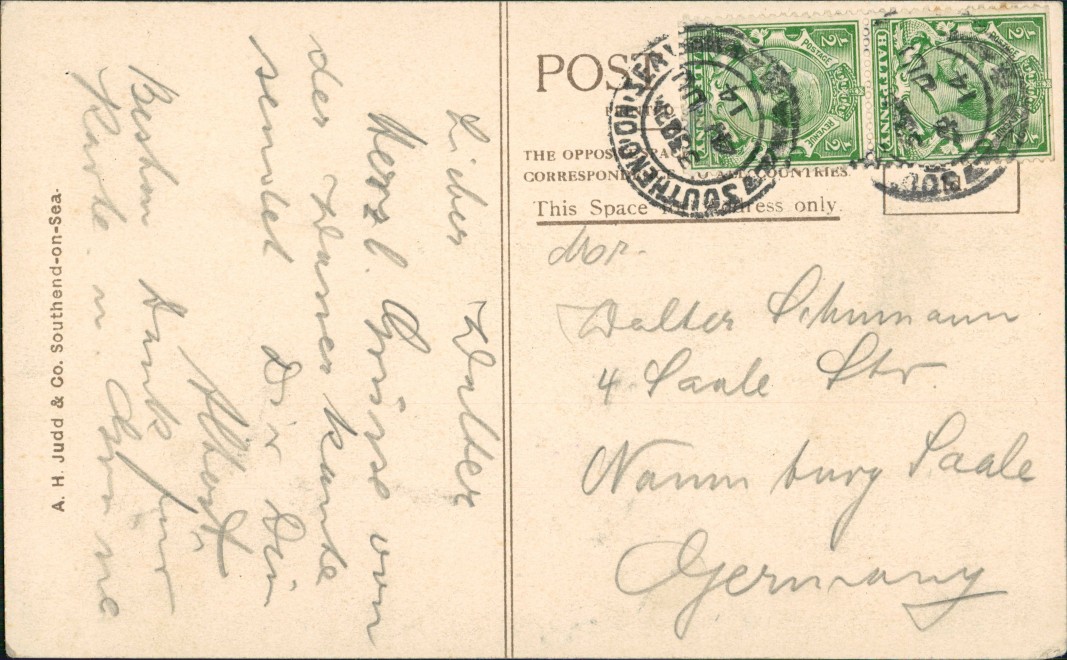 Lieber Walter
Herzl. Grüsse von
der Wasserkante
sendet Dir Dein
Albert.
Besten Dank für
Karte n.
A. H. Judd & Co. Southend-on-Sea.
POST
THE OPPOS
CORRESPON COUNTRIES.
This Space for Address only.
SOUTHEND-ON-SEA
JU
14
½ POSTAGE REVENUE ½
HALF PENNY
Mr.
Walter Schumann
4 Saale Str
Naumburg Saale
Germany